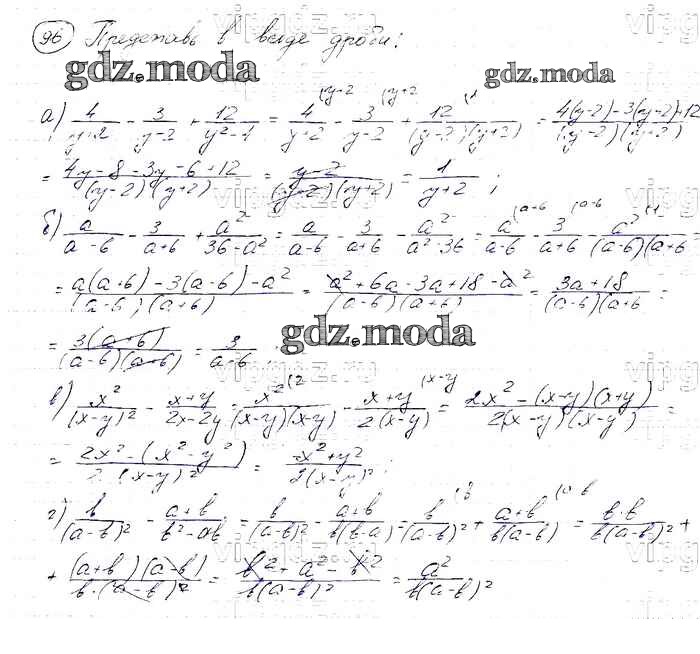 96 Представь в виде дроби:
gdz.moda gdz.moda
а) 4/(y+2) - 3/(y-2) + 12/(y²-4) = 4/(y+2) (y-2 - 3/(y-2) (y+2 + 12/((y-2)(y+2)) (1 = (4(y-2)-3(y-2)+12)/((y-2)(y+2))
= (4y-8-3y-6+12)/((y-2)(y+2)) = (y-2)/((y-2)(y+2)) = 1/(y+2) ;
б) a/(a-6) - 3/(a+6) + a²/(36-a²) = a/(a-6) - 3/(a+6) - a²/(a²-36) = a/(a-6) (a+6 - 3/(a+6) (a-6 - a²/((a-6)(a+6 (1 =
= (a(a+6)-3(a-6)-a²)/((a-6)(a+6)) = (a²+6a-3a+18-a²)/((a-6)(a+6)) = (3a+18)/((a-6)(a+6 =
= 3(a+6)/((a-6)(a+6)) = 3/(a-6)
gdz.moda
в) x²/(x-y)² - (x+y)/(2x-2y) = x²/((x-y)(x-y)) (2 - (x+y)/(2(x-y)) (x-y = (2x²-(x-y)(x+y))/(2(x-y)(x-y)) =
= (2x²-(x²-y²))/(2(x-y)²) = (x²+y²)/(2(x-y)²) ;
г) b/(a-b)² - (a+b)/(b²-ab) = b/(a-b)² - (a+b)/(b(b-a)) = b/(a-b)² (b + (a+b)/(b(a-b)) (a-b = b·b/(b(a-b)²) +
+ (a+b)(a-b)/(b·(a-b)²) = (b²+a²-b²)/(b(a-b)²) = a²/(b(a-b)²)